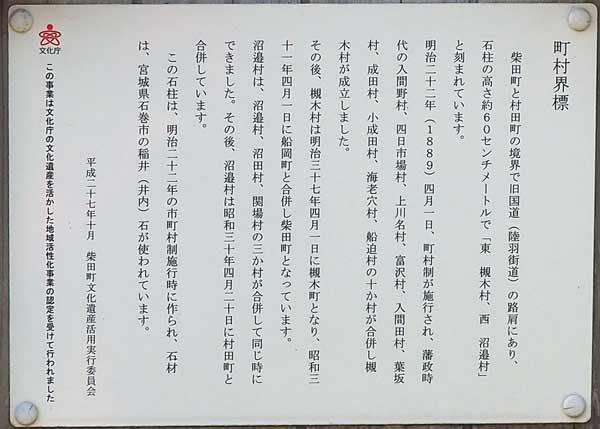 町村界標
柴田町と村田町の境界で旧国道（陸羽街道）の路肩にあり、
石柱の高さ約６０センチメートルで「東　槻木村、西　沼邉村」
と刻まれています。
明治二十二年（１８８９）四月一日、町村制が施行され、藩政時
代の入間野村、四日市場村、上川名村、富沢村、入間田村、葉坂
村、成田村、小成田村、海老穴村、船迫村の十か村が合併し槻
木村が成立しました。
その後、槻木村は明治三十七年四月一日に槻木町となり、昭和三
十一年四月一日に船岡町と合併し柴田町となっています。
沼邉村は、沼邉村、沼田村、関場村の三か村が合併して同じ時に
できました。その後、沼邉村は昭和三十年四月二十日に村田町と
合併しています。
この石柱は、明治二十二年の市町村制施行時に作られ、石材
は、宮城県石巻市の稲井（井内）石が使われています。
平成二十七年十月　柴田町文化遺産活用実行委員会
文化庁
この事業は文化庁の文化遺産を活かした地域活性化事業の認定を受けて行われました